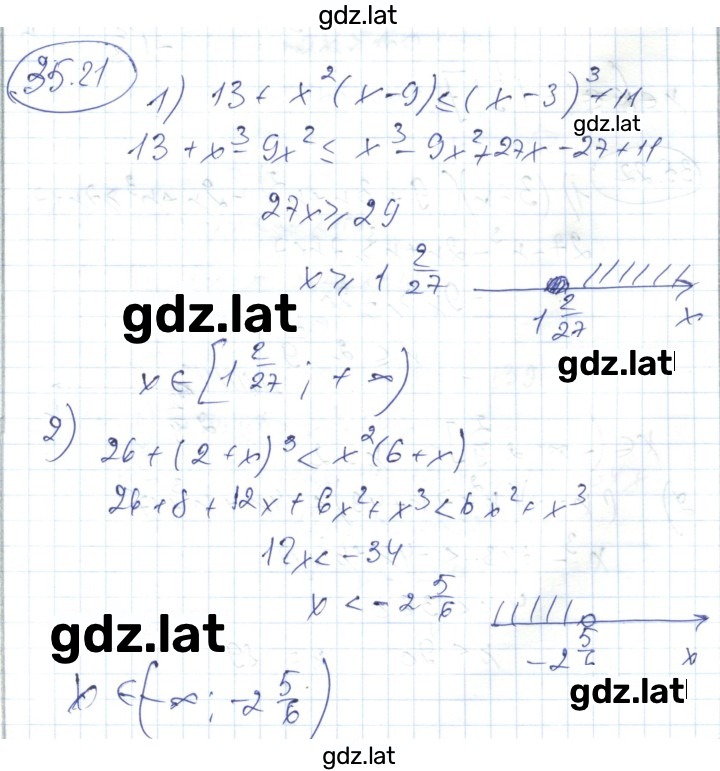 gdz.lat
35.21
1) 13 + x²(x-9) ≤ (x-3)³ + 11
gdz.lat
13 + x³ - 9x² ≤ x³ - 9x² + 27x - 27 + 11
27x ≥ 29
x ≥ 1 2/27
1 2/27 x
gdz.lat
gdz.lat
x ∈ [1 2/27 ; +∞)
2) 26 + (2+x)³ < x²(6+x)
26 + 8 + 12x + 6x² + x³ < 6x² + x³
12x < -34
x < -2 5/6
-2 5/6 x
gdz.lat
gdz.lat
x ∈ (-∞ ; -2 5/6)
gdz.lat